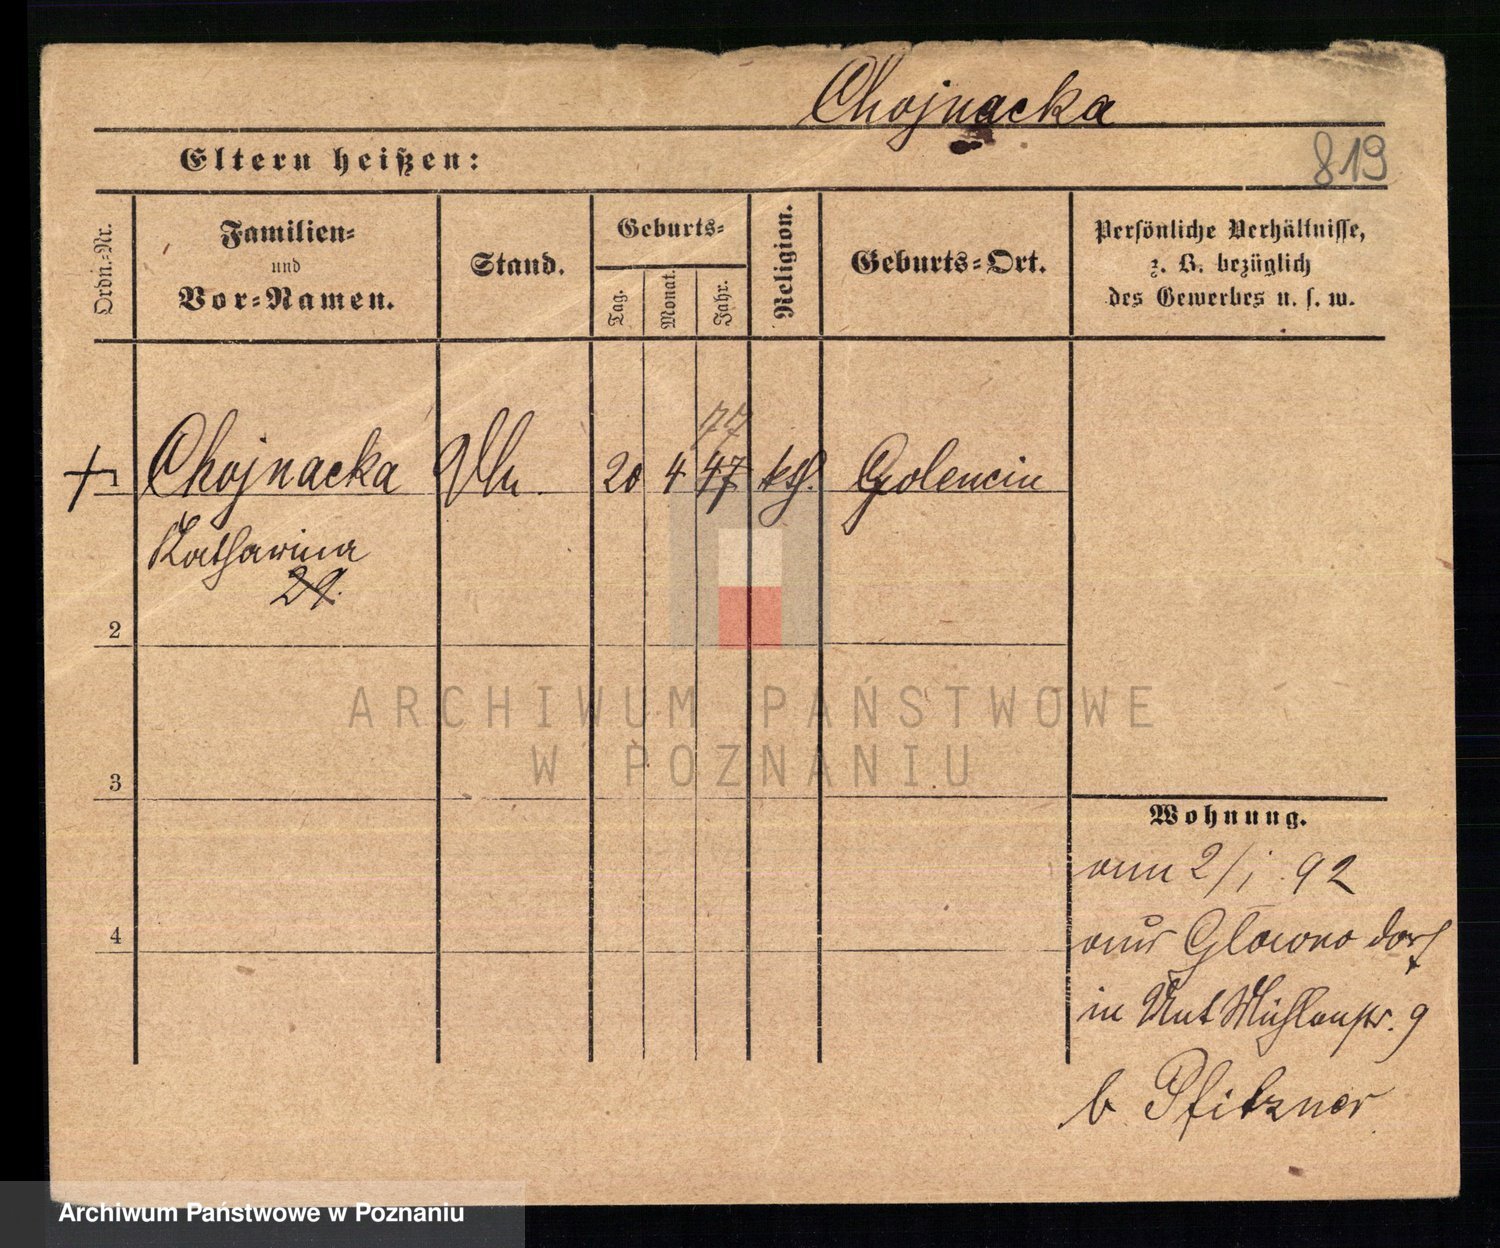 Chojnacka
819
Eltern heißen:
Ordn.-Nr.
Familien-
und
Vor-Namen.
Stand.
Geburts-
Tag.
Monat.
Jahr.
Religion.
Geburts-Ort.
Persönliche Verhältnisse,
z. B. bezüglich
des Gewerbes u. s. w.
77
Chojnacka 20 4 47 kth. Golencin
Katharina
29.
2
3
4
Wohnung.
am 2/1. 92
aus Glowno dorf
in Unt Mühlenstr. 9
b. Pfitzner
ARCHIWUM PAŃSTWOWE
W POZNANIU
Archiwum Państwowe w Poznaniu